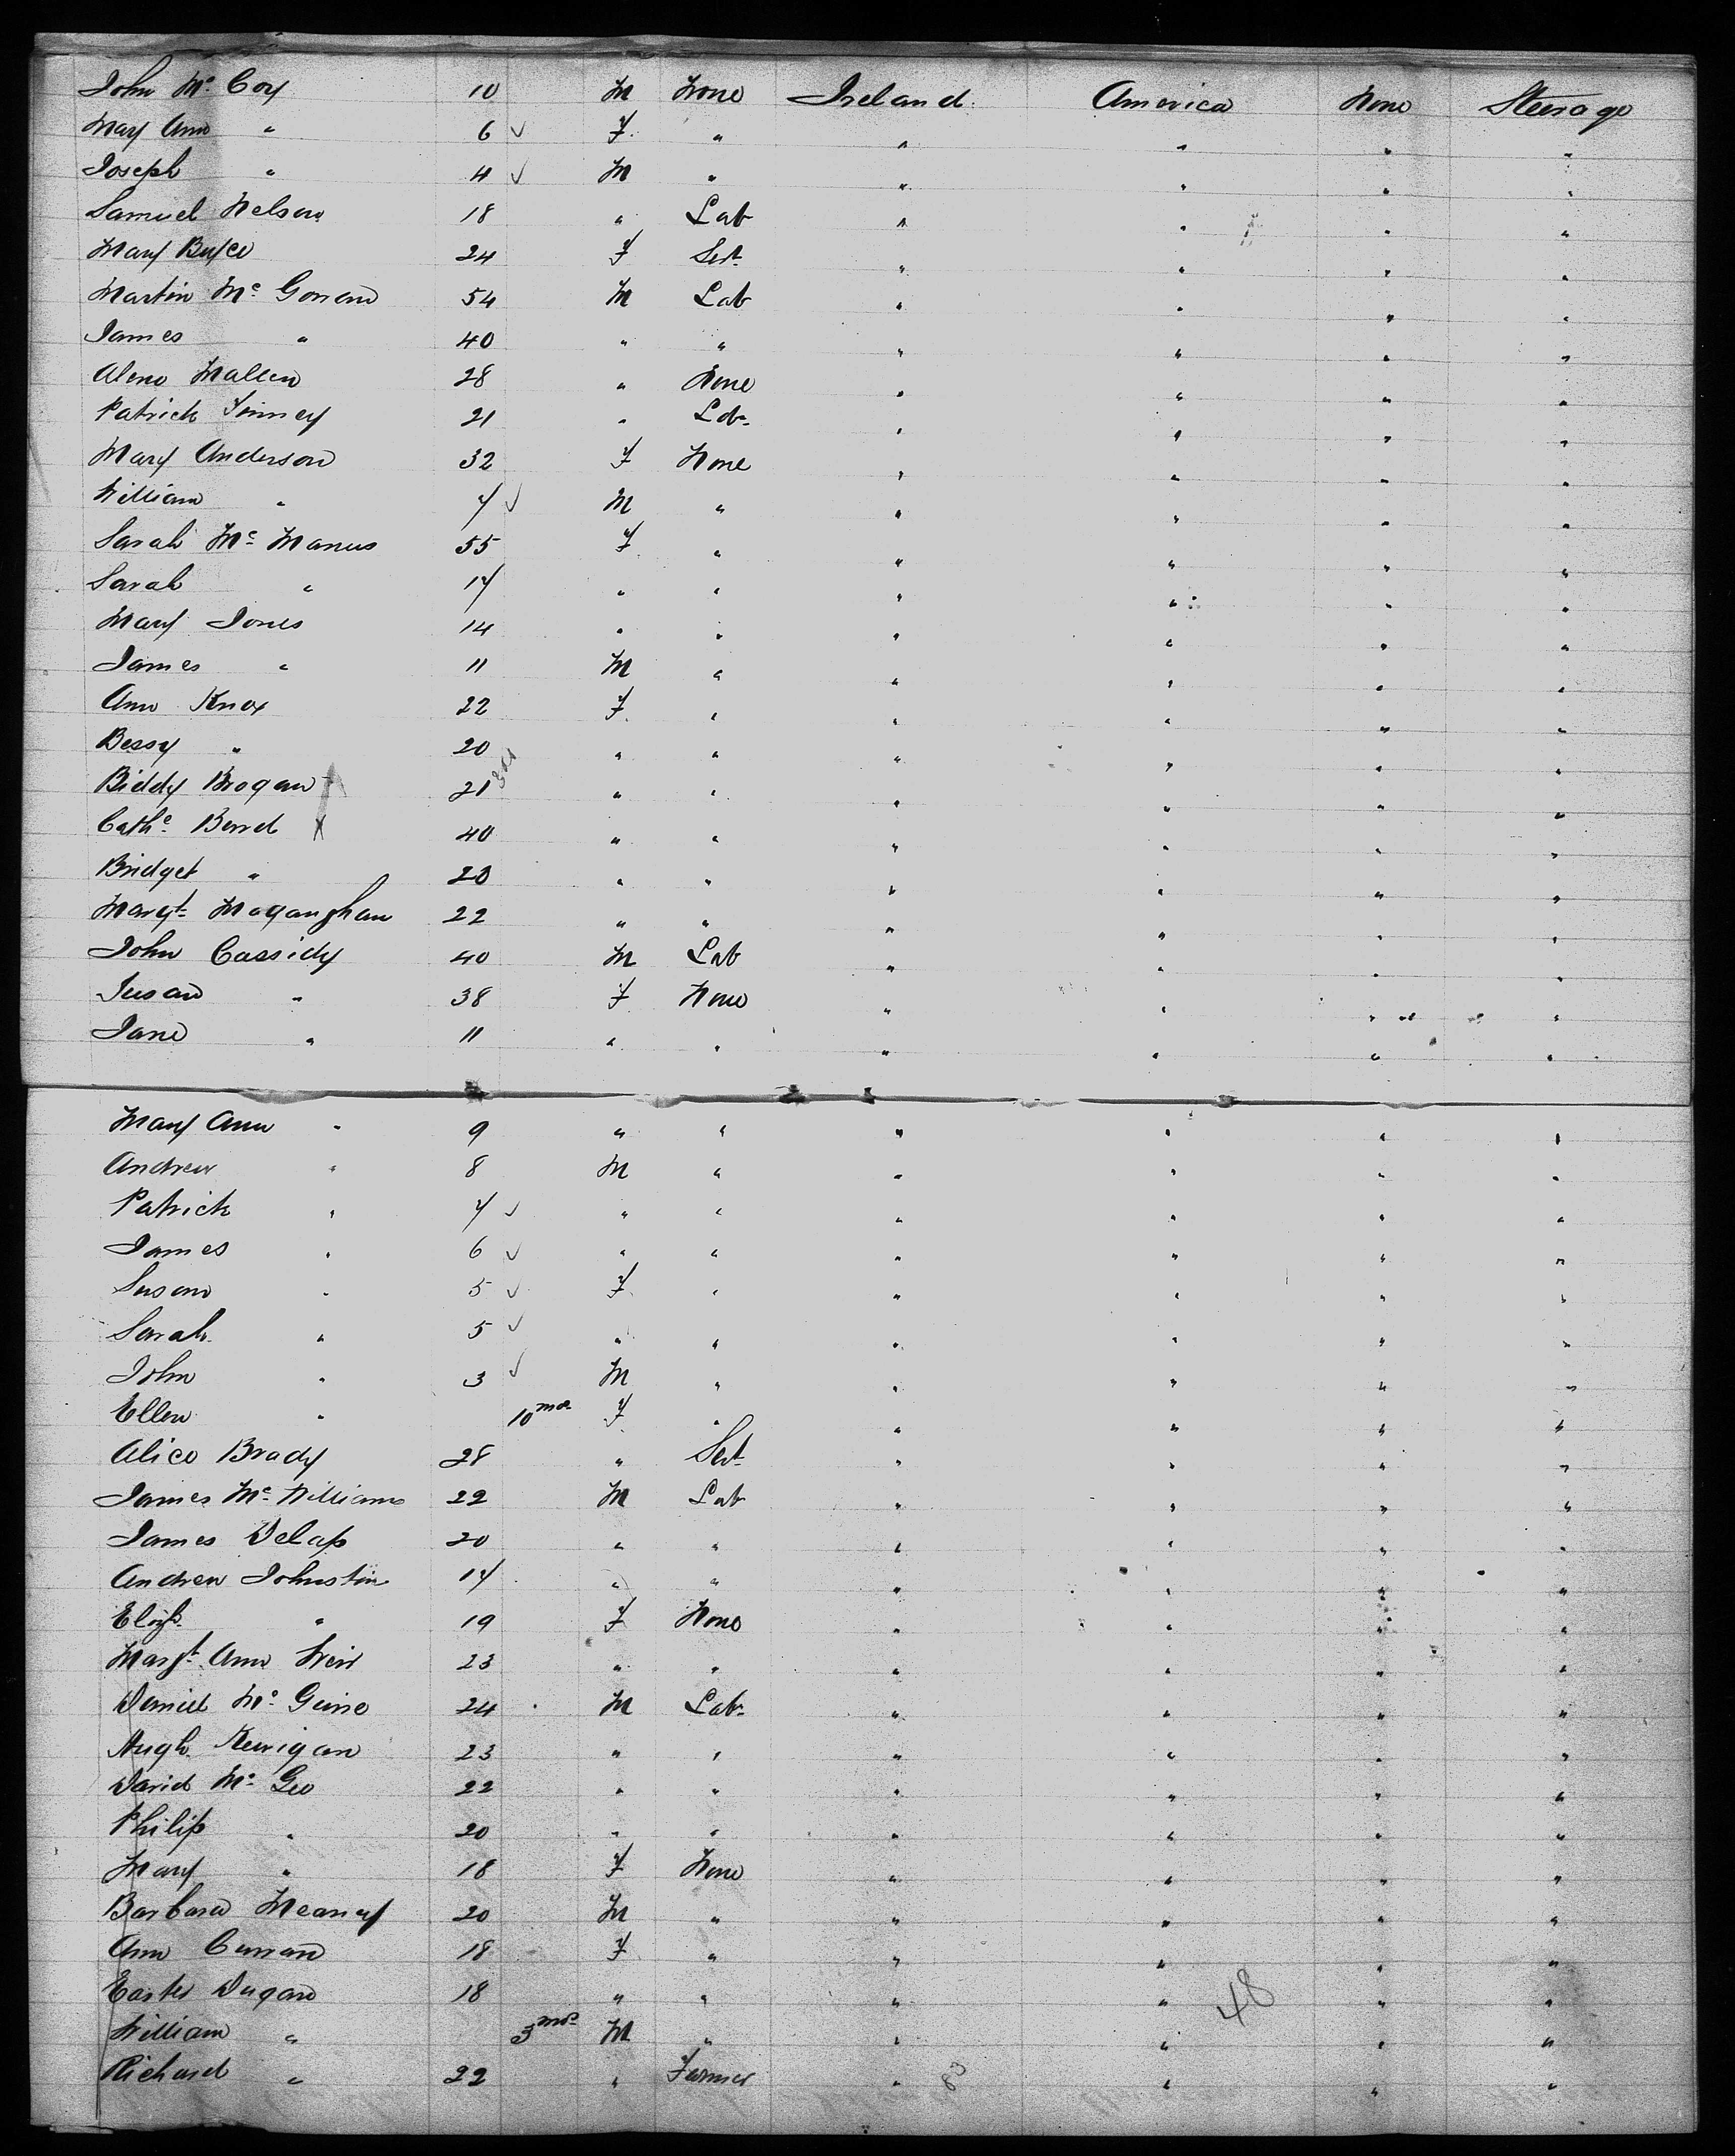 John Mc Coy 10 M None Ireland America None Steerage
Mary Ann " 6 ✓ F " " " " "
Joseph " 4 ✓ M " " " " "
Samuel Nelson 18 " Lab " " " "
Mary Boyce 24 F Sert " " " "
Martin Mc Gowan 54 M Lab " " " "
James " 40 " " " " " "
Mallen 28 " None " " " "
Patrick Finney 21 " Lab " " " "
Mary Anderson 32 F None " " " "
William " 7 ✓ M " " " " "
Sarah Mc Manus 55 F " " " " "
Sarah " 17 " " " " " "
Mary Jones 14 " " " " " "
James " 11 M " " " " "
Ann Knox 22 F " " " " "
Bessy " 20 " " " " " "
Biddy Brogan 21 " " " " " "
Cathe Bond X 40 " " " " " "
Bridget " 20 " " " " " "
Margt Magaughan 22 " " " " " "
John Cassidy 40 M Lab " " " "
Susan " 38 F None " " " "
Jane " 11 " " " " " "
Mary Ann " 9 " " " " " "
Andrew " 8 M " " " " "
Patrick " 7 ✓ " " " " " "
James " 6 ✓ " " " " " "
Susan " 5 ✓ F " " " " "
Sarah " 5 ✓ " " " " " "
John " 3 ✓ M " " " " "
Ellen " 10 mos F " " " " "
Alice Brady 28 " Sert " " " "
James Mc Williams 22 M Lab " " " "
James Delap 20 " " " " " "
Andrew Johnston 17 " " " " " "
Elizh " 19 F None " " " "
Margt Ann Weir 23 " " " " " "
Daniel Mc Guire 24 M Lab " " " "
Hugh Kerrigan 23 " " " " " "
David Mc Gee 22 " " " " " "
Philip " 20 " " " " " "
Mary " 18 F None " " " "
Barbara Meaney 20 M " " " " "
Ann Curran 18 F " " " " "
Easter Dugan 18 " " " " 48 " "
William " 3 mos M " " " " "
Richard " 22 " Farmer " " " "